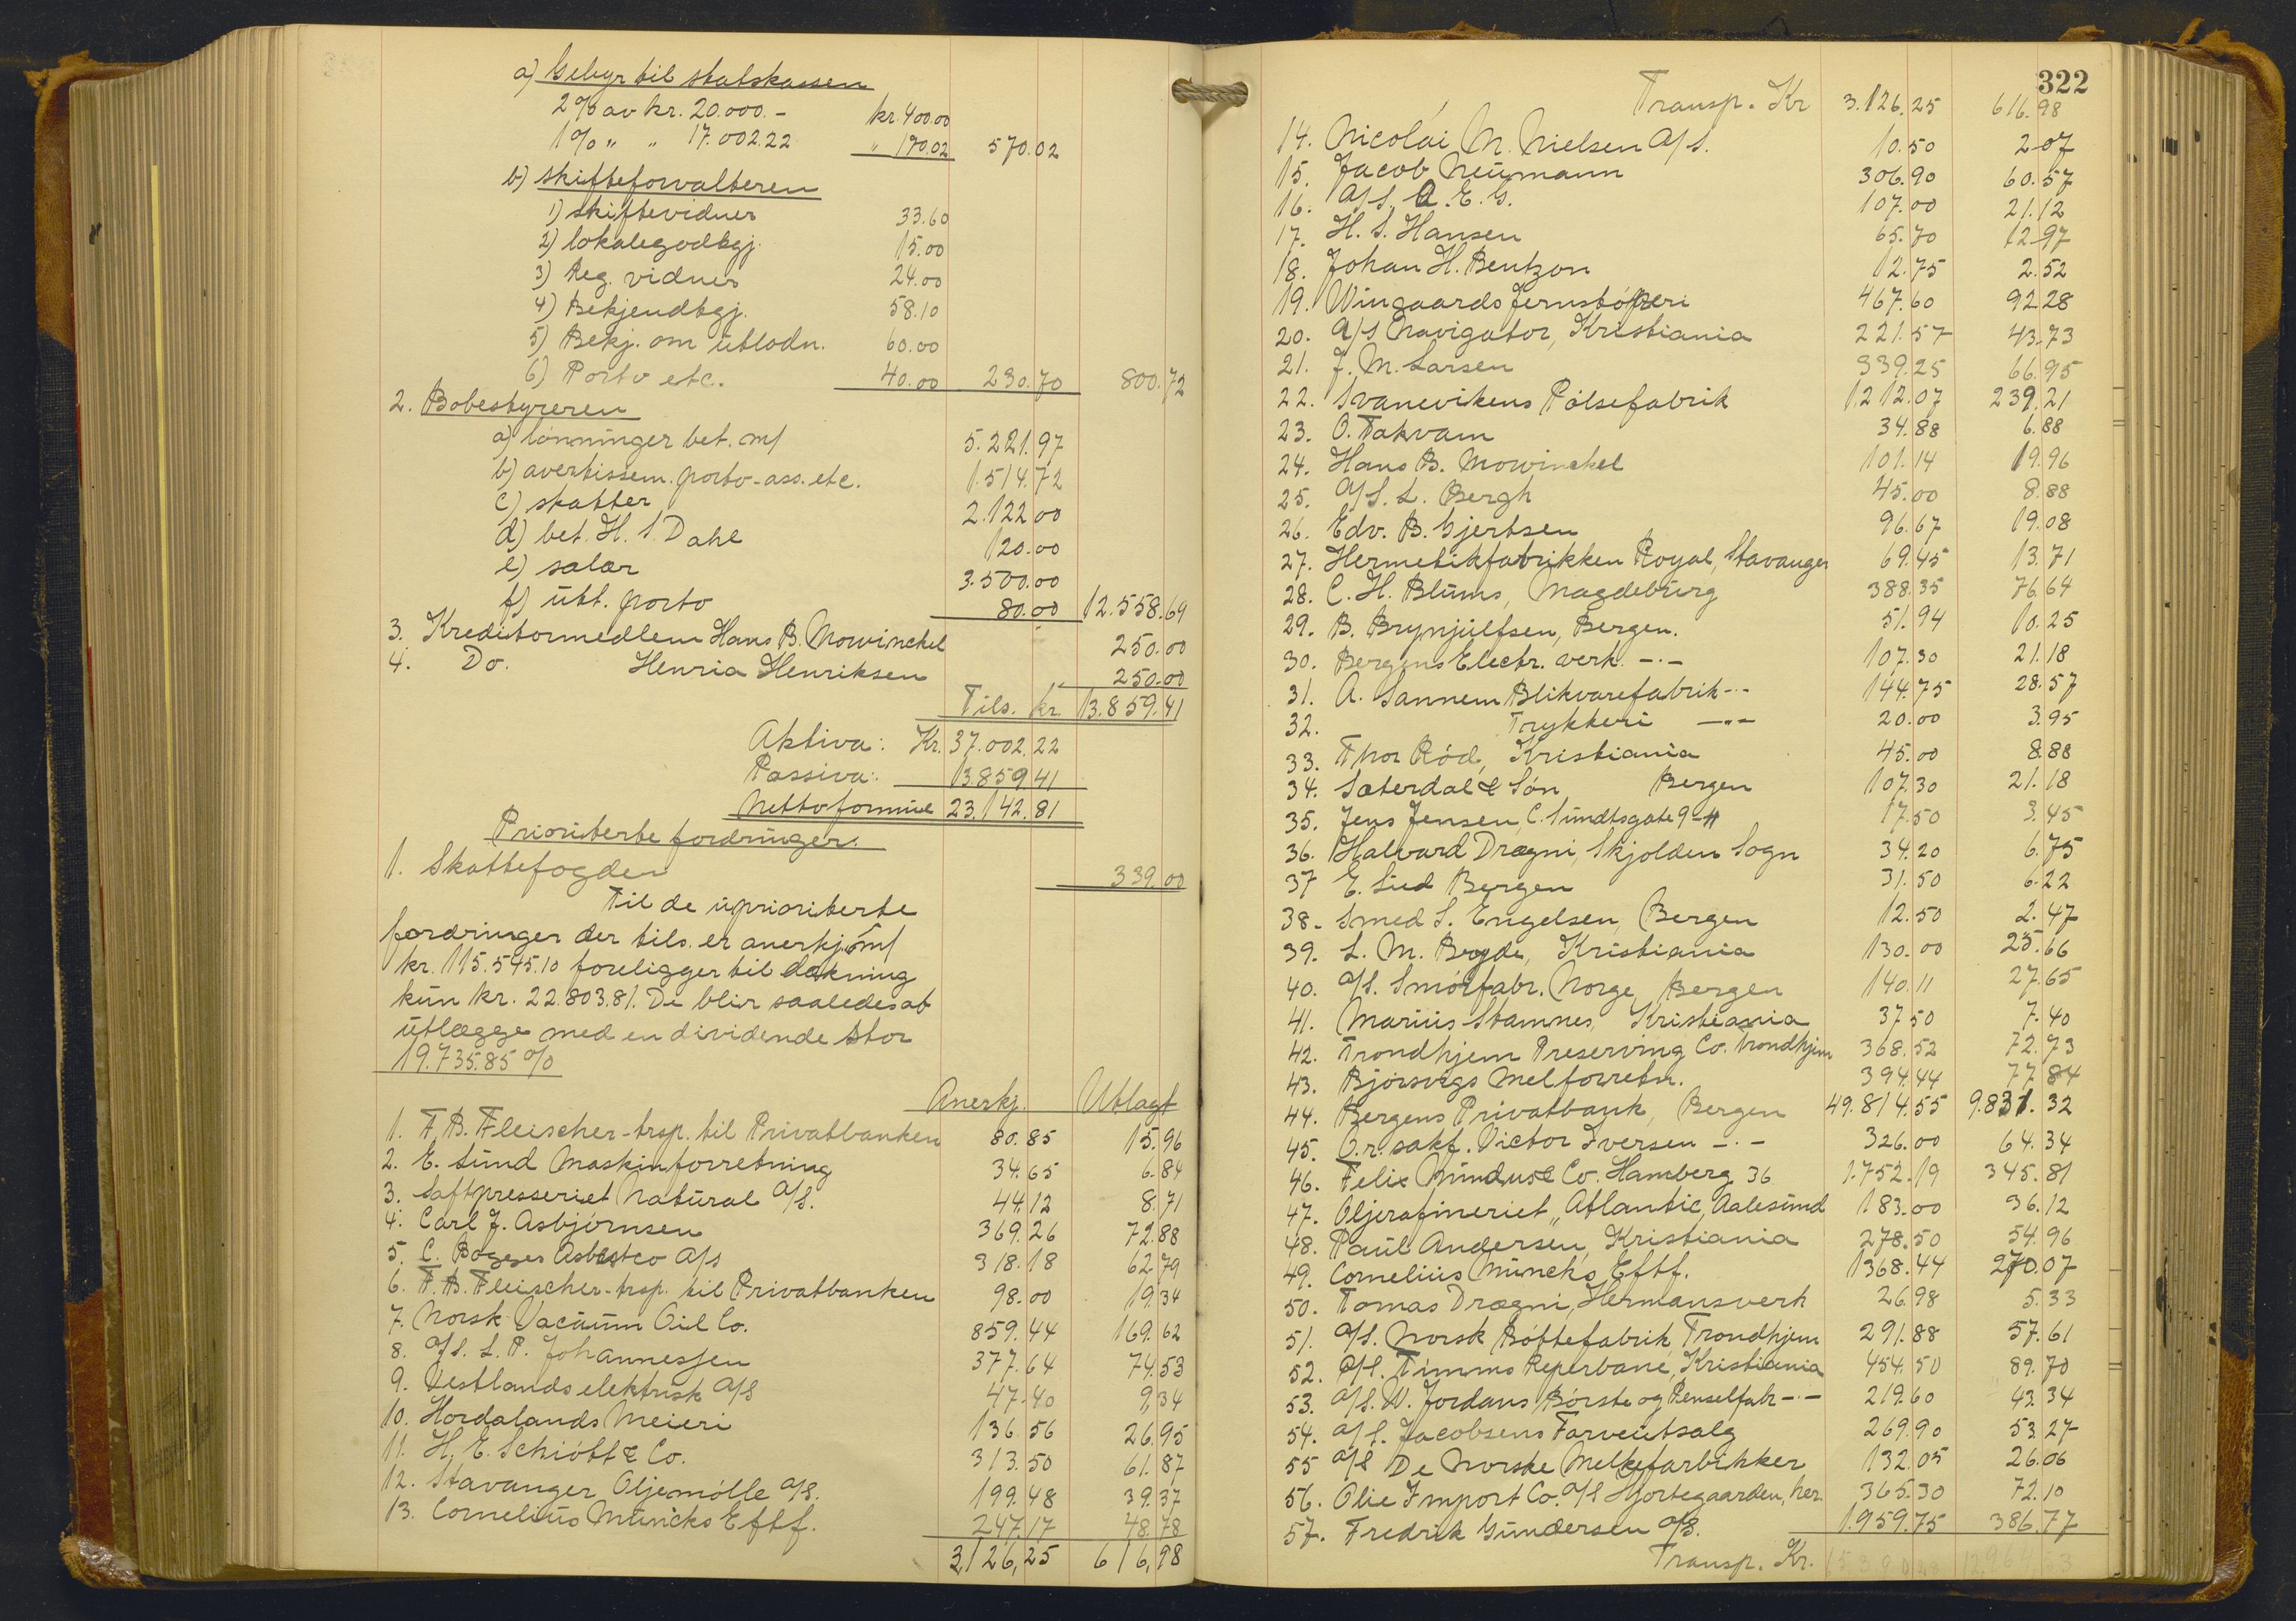 a) Gebyr til statskassen
2 % av kr. 20.000.- kr. 400.00
1 % " " 17.002.22 " 170.02 570.02
b) skifteforvalteren
1) skiftevidner 33.60
2) lokalegodtgj. 15.00
3) Reg. vidner 24.00
4) Bekjendtgj. 58.10
5) Bekj. om utlodn. 60.00
6) Porto etc. 40.00 230.70 800.72
2. Bobestyreren
a) lønninger bet. m/ 5.221.97
b) avertissem. porto-ass. etc. 1.514.72
c) skatter 2.122.00
d) bet. H. S. Dahl 120.00
e) salær 3.500.00
f) utl. porto 80.00 12.558.69
3. Kreditormedlem Hans B. Mowinckel 250.00
4. Do. Henria Henriksen 250.00
Tils. kr. 13.859.41
Aktiva: Kr. 37.002.22
Passiva: 13.859.41
Nettoformue 23.142.81
Prioriterte fordringer.
1. Skattefogden 339.00
Til de uprioriterte
fordringer der tils. er anerkj. m/
kr. 115.545.10 foreligger til dækning
kun kr. 22.803.81. De blir saaledes at
utlægge med en dividende stor
19.735.85 %
Anerkj. Utlagt
1. F. B. Fleischer-trsp. til Privatbanken 80.85 15.96
2. E. Sund Maskinforretning 34.65 6.84
3. Saftpresseriet Natural A/S. 44.12 8.71
4. Carl J. Asbjørnsen 369.26 72.88
5. C. Bøgees Asbestco A/S 318.18 62.79
6. F. B. Fleischer-trsp. til Privatbanken 98.00 19.34
7. Norsk Vacuum Oil Co. 859.44 169.62
8. A/S. L. P. Johannessen 377.64 74.53
9. Vestlands elektrisk A/S 47.40 9.34
10. Hordalands Meieri 136.56 26.95
11. H. E. Schiøtt & Co. 313.50 61.87
12. Stavanger Oljemølle A/S. 199.48 39.37
13. Cornelius Muncks Eftf. 247.17 48.78
3,126,25 616,98
322
Transp. Kr 3.126.25 616.98
14. Nicolai M. Nielsen A/S. 10.50 2.07
15. Jacob Neumann 306.90 60.57
16. A/S. A.E.G. 107.00 21.12
17. H. S. Hansen 65.70 12.97
18. Johan H. Bentzon 12.75 2.52
19. Wingaards Jernstøperi 467.60 92.28
20. A/S Navigator, Kristiania 221.57 43.73
21. J. M. Larsen 339.25 66.95
22. Svanevikens Pølsefabrik 1212.07 239.21
23. O. Takvam 34.88 6.88
24. Hans B. Mowinckel 101.14 19.96
25. A/S. L. Bergh 45.00 8.88
26. Edv. B. Gjertsen 96.67 19.08
27. Hermetikfabrikken Royal, Stavanger 69.45 13.71
28. C. H. Blums, Magdeburg 388.35 76.64
29. B. Brynjulfsen, Bergen. 51.94 10.25
30. Bergens Electr. verk. -.- 107.30 21.18
31. A. Sannem Blikvarefabrik -.- 144.75 28.57
32. Trykkeri -.- 20.00 3.95
33. Thor Rød, Kristiania 45.00 8.88
34. Sæterdal & Søn, Bergen 107.30 21.18
35. Jens Jensen, C. Sundtsgate 9 17.50 3.45
36. Halvard Drægni, Skjolden Sogn 34.20 6.75
37 E. Sud Bergen 31.50 6.22
38. Smed S. Engelsen, Bergen 12.50 2.47
39. L. M. Bøgde, Kristiania 130.00 25.66
40. A/S. Smørfabr. Norge, Bergen 140.11 27.65
41. Marius Stamnes, Kristiania 37.50 7.40
42. Trondhjem Preserving Co. Trondhjem 368.52 72.73
43. Bjørsvigs Melforretn. 394.44 77.84
44. Bergens Privatbank, Bergen 49.814.55 9.831.32
45. O.r. sakf. Victor Iversen -.- 326.00 64.34
46. Felix Mundus & Co. Hamberg 36 1.752.19 345.81
47. Oljerafineriet "Atlantic, Aalesund 183.00 36.12
48. Paul Andersen, Kristiania 278.50 54.96
49. Cornelius Muncks Eftf. 1368.44 270.07
50. Tomas Drægni, Hermansverk 26.98 5.33
51. A/S. Norsk Bøttefabrik, Trondhjem 291.88 57.61
52. A/S. Timms Reperbane, Kristiania 454.50 89.70
53. A/S. W. Jordans Børste og Penselfabr -.- 219.60 43.34
54. A/S. Jacobsens Farveutsalg 269.90 53.27
55 A/S De Norske Melkefabrikker 132.05 26.06
56. Olie Import Co. A/S Hjortegaarden, her. 365.30 72.10
57. Fredrik Gundersen A/S. 1.959.75 386.77
Transp. Kr.